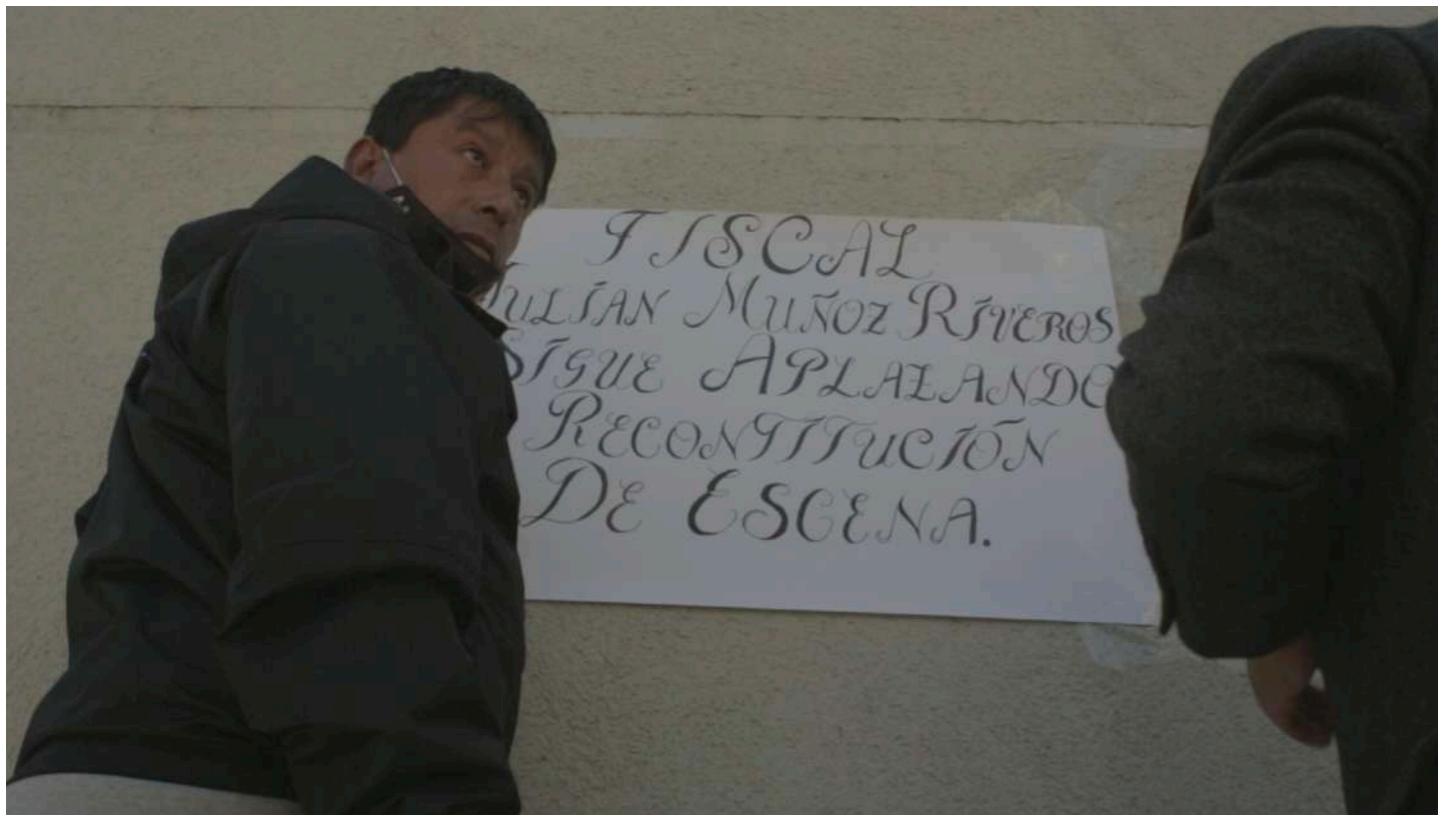 FISCAL
JULIAN MUÑOZ RIVEROS
SIGUE APLAZANDO
RECONTITUCIÓN
DE ESCENA.